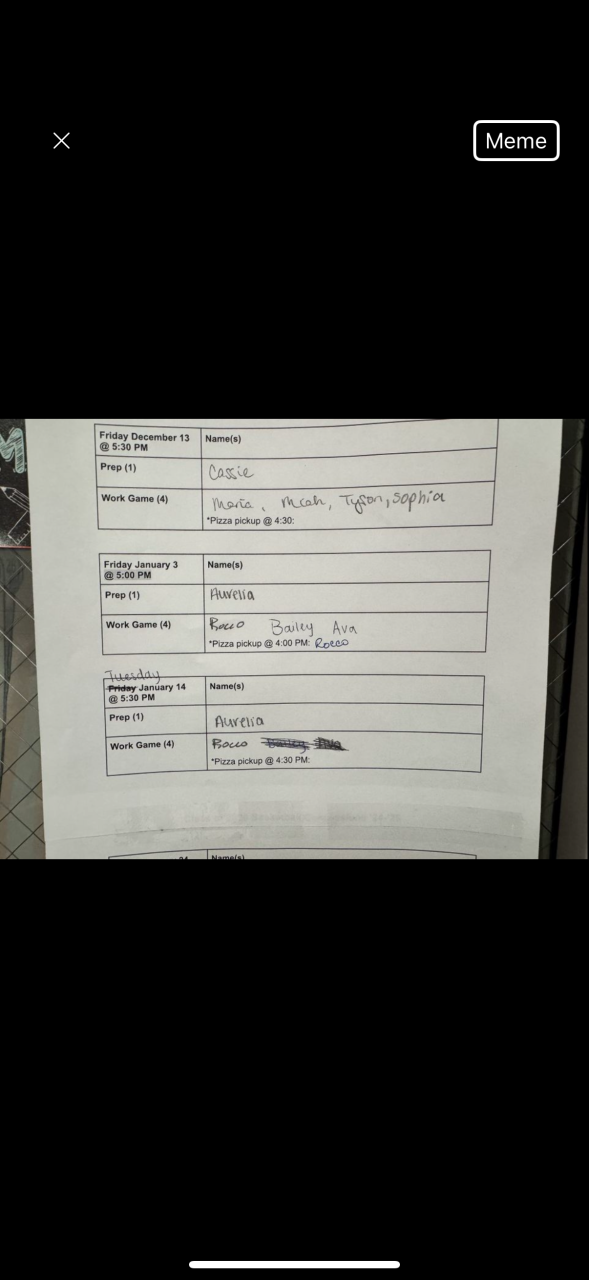 Meme
M
Friday December 13
@ 5:30 PM
Name(s)
Prep (1)
Cassie
Work Game (4)
Maria, Micah, Tyson, Sophia
*Pizza pickup @ 4:30:
Friday January 3
@ 5:00 PM
Name(s)
Prep (1)
Aurelia
Work Game (4)
Rocco Bailey Ava
*Pizza pickup @ 4:00 PM: Rocco
Tuesday
Friday January 14
@ 5:30 PM
Name(s)
Prep (1)
Aurelia
Work Game (4)
Rocco Bailey Ava
*Pizza pickup @ 4:30 PM:
Name(s)